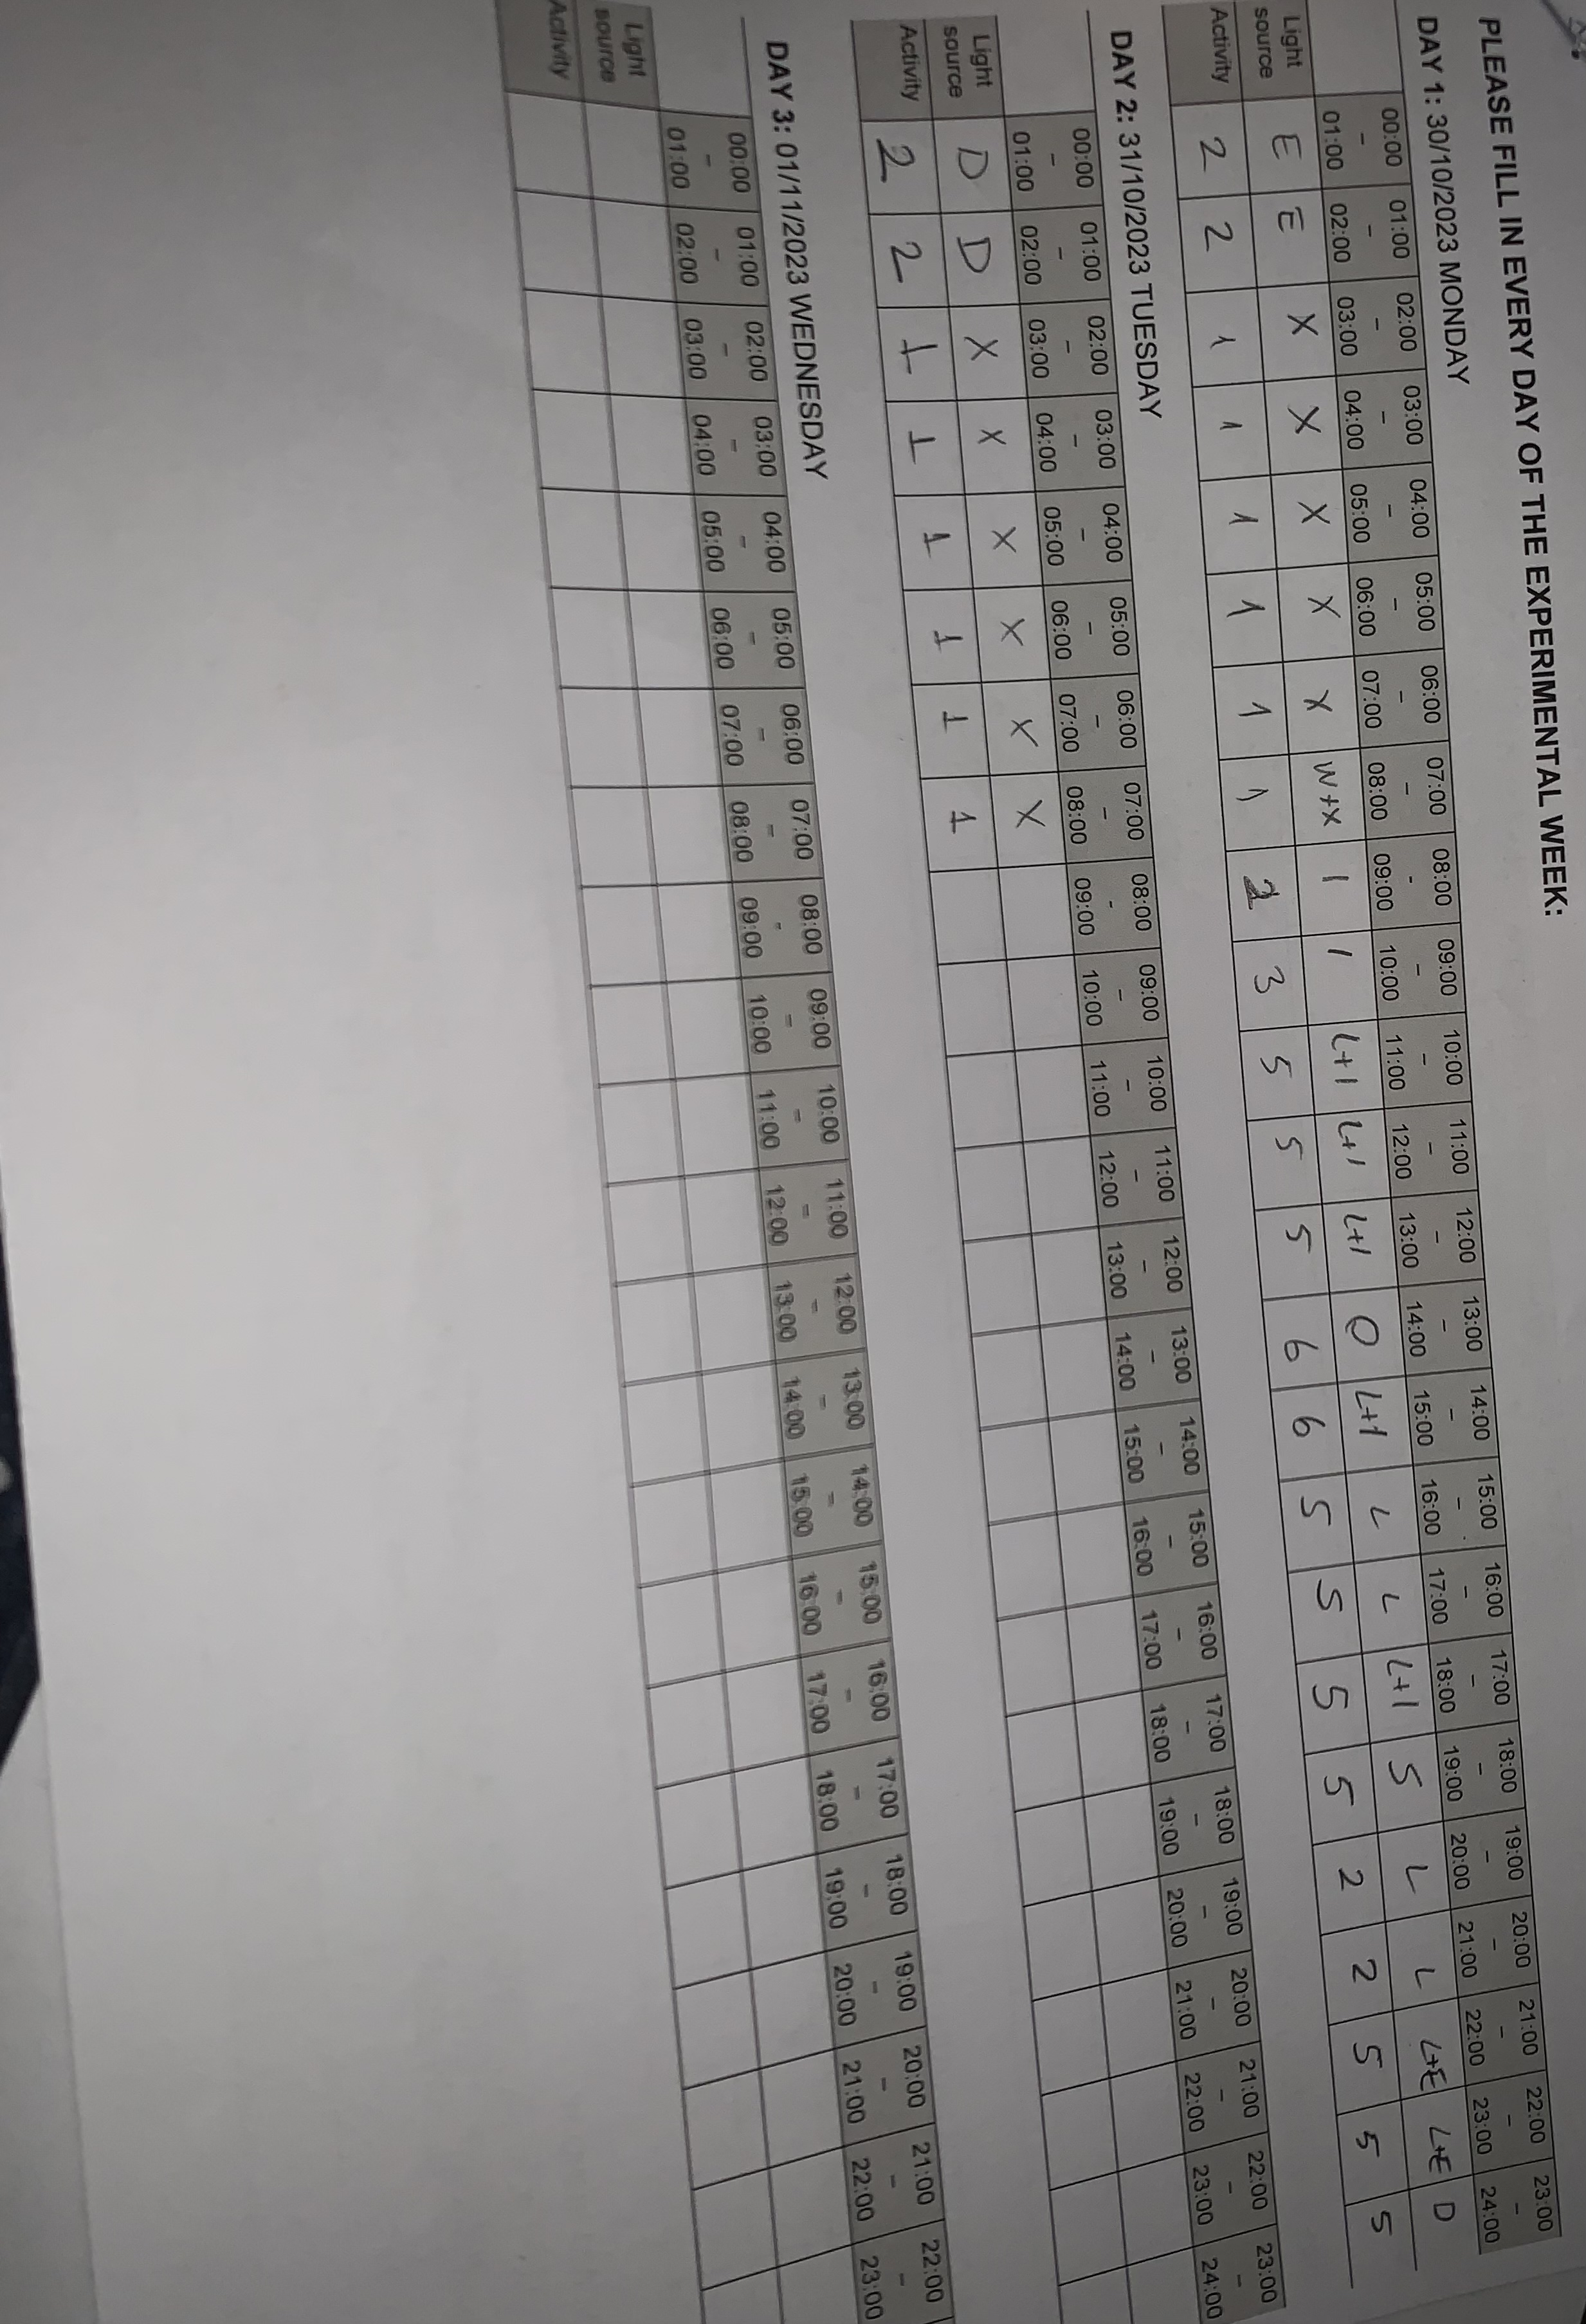 PLEASE FILL IN EVERY DAY OF THE EXPERIMENTAL WEEK:
DAY 1: 30/10/2023 MONDAY
00:00 - 01:00 01:00 - 02:00 02:00 - 03:00 03:00 - 04:00 04:00 - 05:00 05:00 - 06:00 06:00 - 07:00 07:00 - 08:00 08:00 - 09:00 09:00 - 10:00 10:00 - 11:00 11:00 - 12:00 12:00 - 13:00 13:00 - 14:00 14:00 - 15:00 15:00 - 16:00 16:00 - 17:00 17:00 - 18:00 18:00 - 19:00 19:00 - 20:00 20:00 - 21:00 21:00 - 22:00 22:00 - 23:00 23:00 - 24:00
Light source E E X X X X X W+X I I L+I L+I L+I O L+I L L L+I S L L L+E L+E D
Activity 2 2 1 1 1 1 1 1 2 3 5 5 5 6 6 5 5 5 5 2 2 5 5 5
DAY 2: 31/10/2023 TUESDAY
00:00 - 01:00 01:00 - 02:00 02:00 - 03:00 03:00 - 04:00 04:00 - 05:00 05:00 - 06:00 06:00 - 07:00 07:00 - 08:00 08:00 - 09:00 09:00 - 10:00 10:00 - 11:00 11:00 - 12:00 12:00 - 13:00 13:00 - 14:00 14:00 - 15:00 15:00 - 16:00 16:00 - 17:00 17:00 - 18:00 18:00 - 19:00 19:00 - 20:00 20:00 - 21:00 21:00 - 22:00 22:00 - 23:00 23:00 - 24:00
Light source D D X X X X X X
Activity 2 2 1 1 1 1 1 1
DAY 3: 01/11/2023 WEDNESDAY
00:00 - 01:00 01:00 - 02:00 02:00 - 03:00 03:00 - 04:00 04:00 - 05:00 05:00 - 06:00 06:00 - 07:00 07:00 - 08:00 08:00 - 09:00 09:00 - 10:00 10:00 - 11:00 11:00 - 12:00 12:00 - 13:00 13:00 - 14:00 14:00 - 15:00 15:00 - 16:00 16:00 - 17:00 17:00 - 18:00 18:00 - 19:00 19:00 - 20:00 20:00 - 21:00 21:00 - 22:00 22:00 - 23:00
Light source
Activity